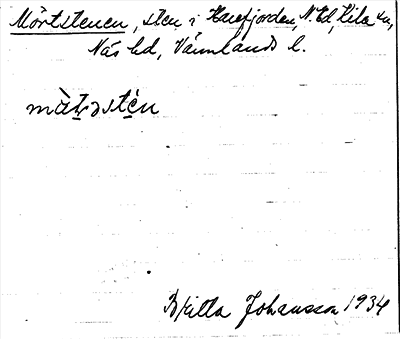 Mörtstenen, sten i Harefjorden, N. Ed, Kila sn,
Näs hd, Värmlands l.
mὰt̠əstèn
Britta Johansson 1934